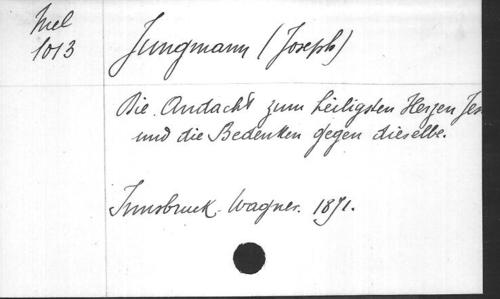 Mel
1013
Jungmann (Joseph)
Die Andacht zum heiligsten Herzen Jes
und die Bedenken gegen dieselbe.
Innsbruck. Wagner. 1871.